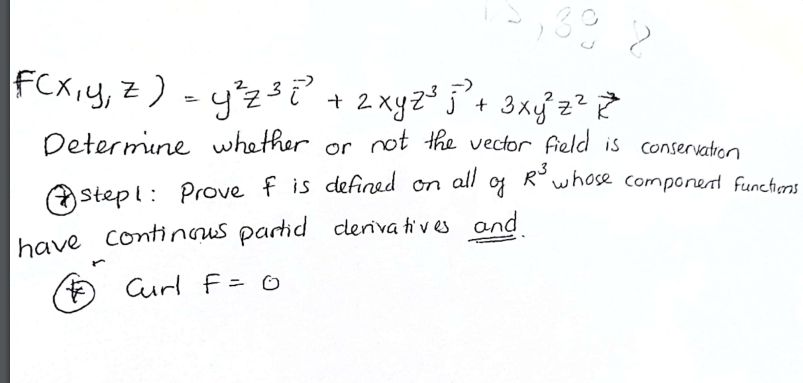 F(x,y,z) = y²z³ i⃗ + 2xyz³ j⃗ + 3xy²z² k⃗
Determine whether or not the vector field is conservation
* Step 1: Prove f is defined on all of R³ whose component functions
have continous partid derivatives and.
* Curl F = 0